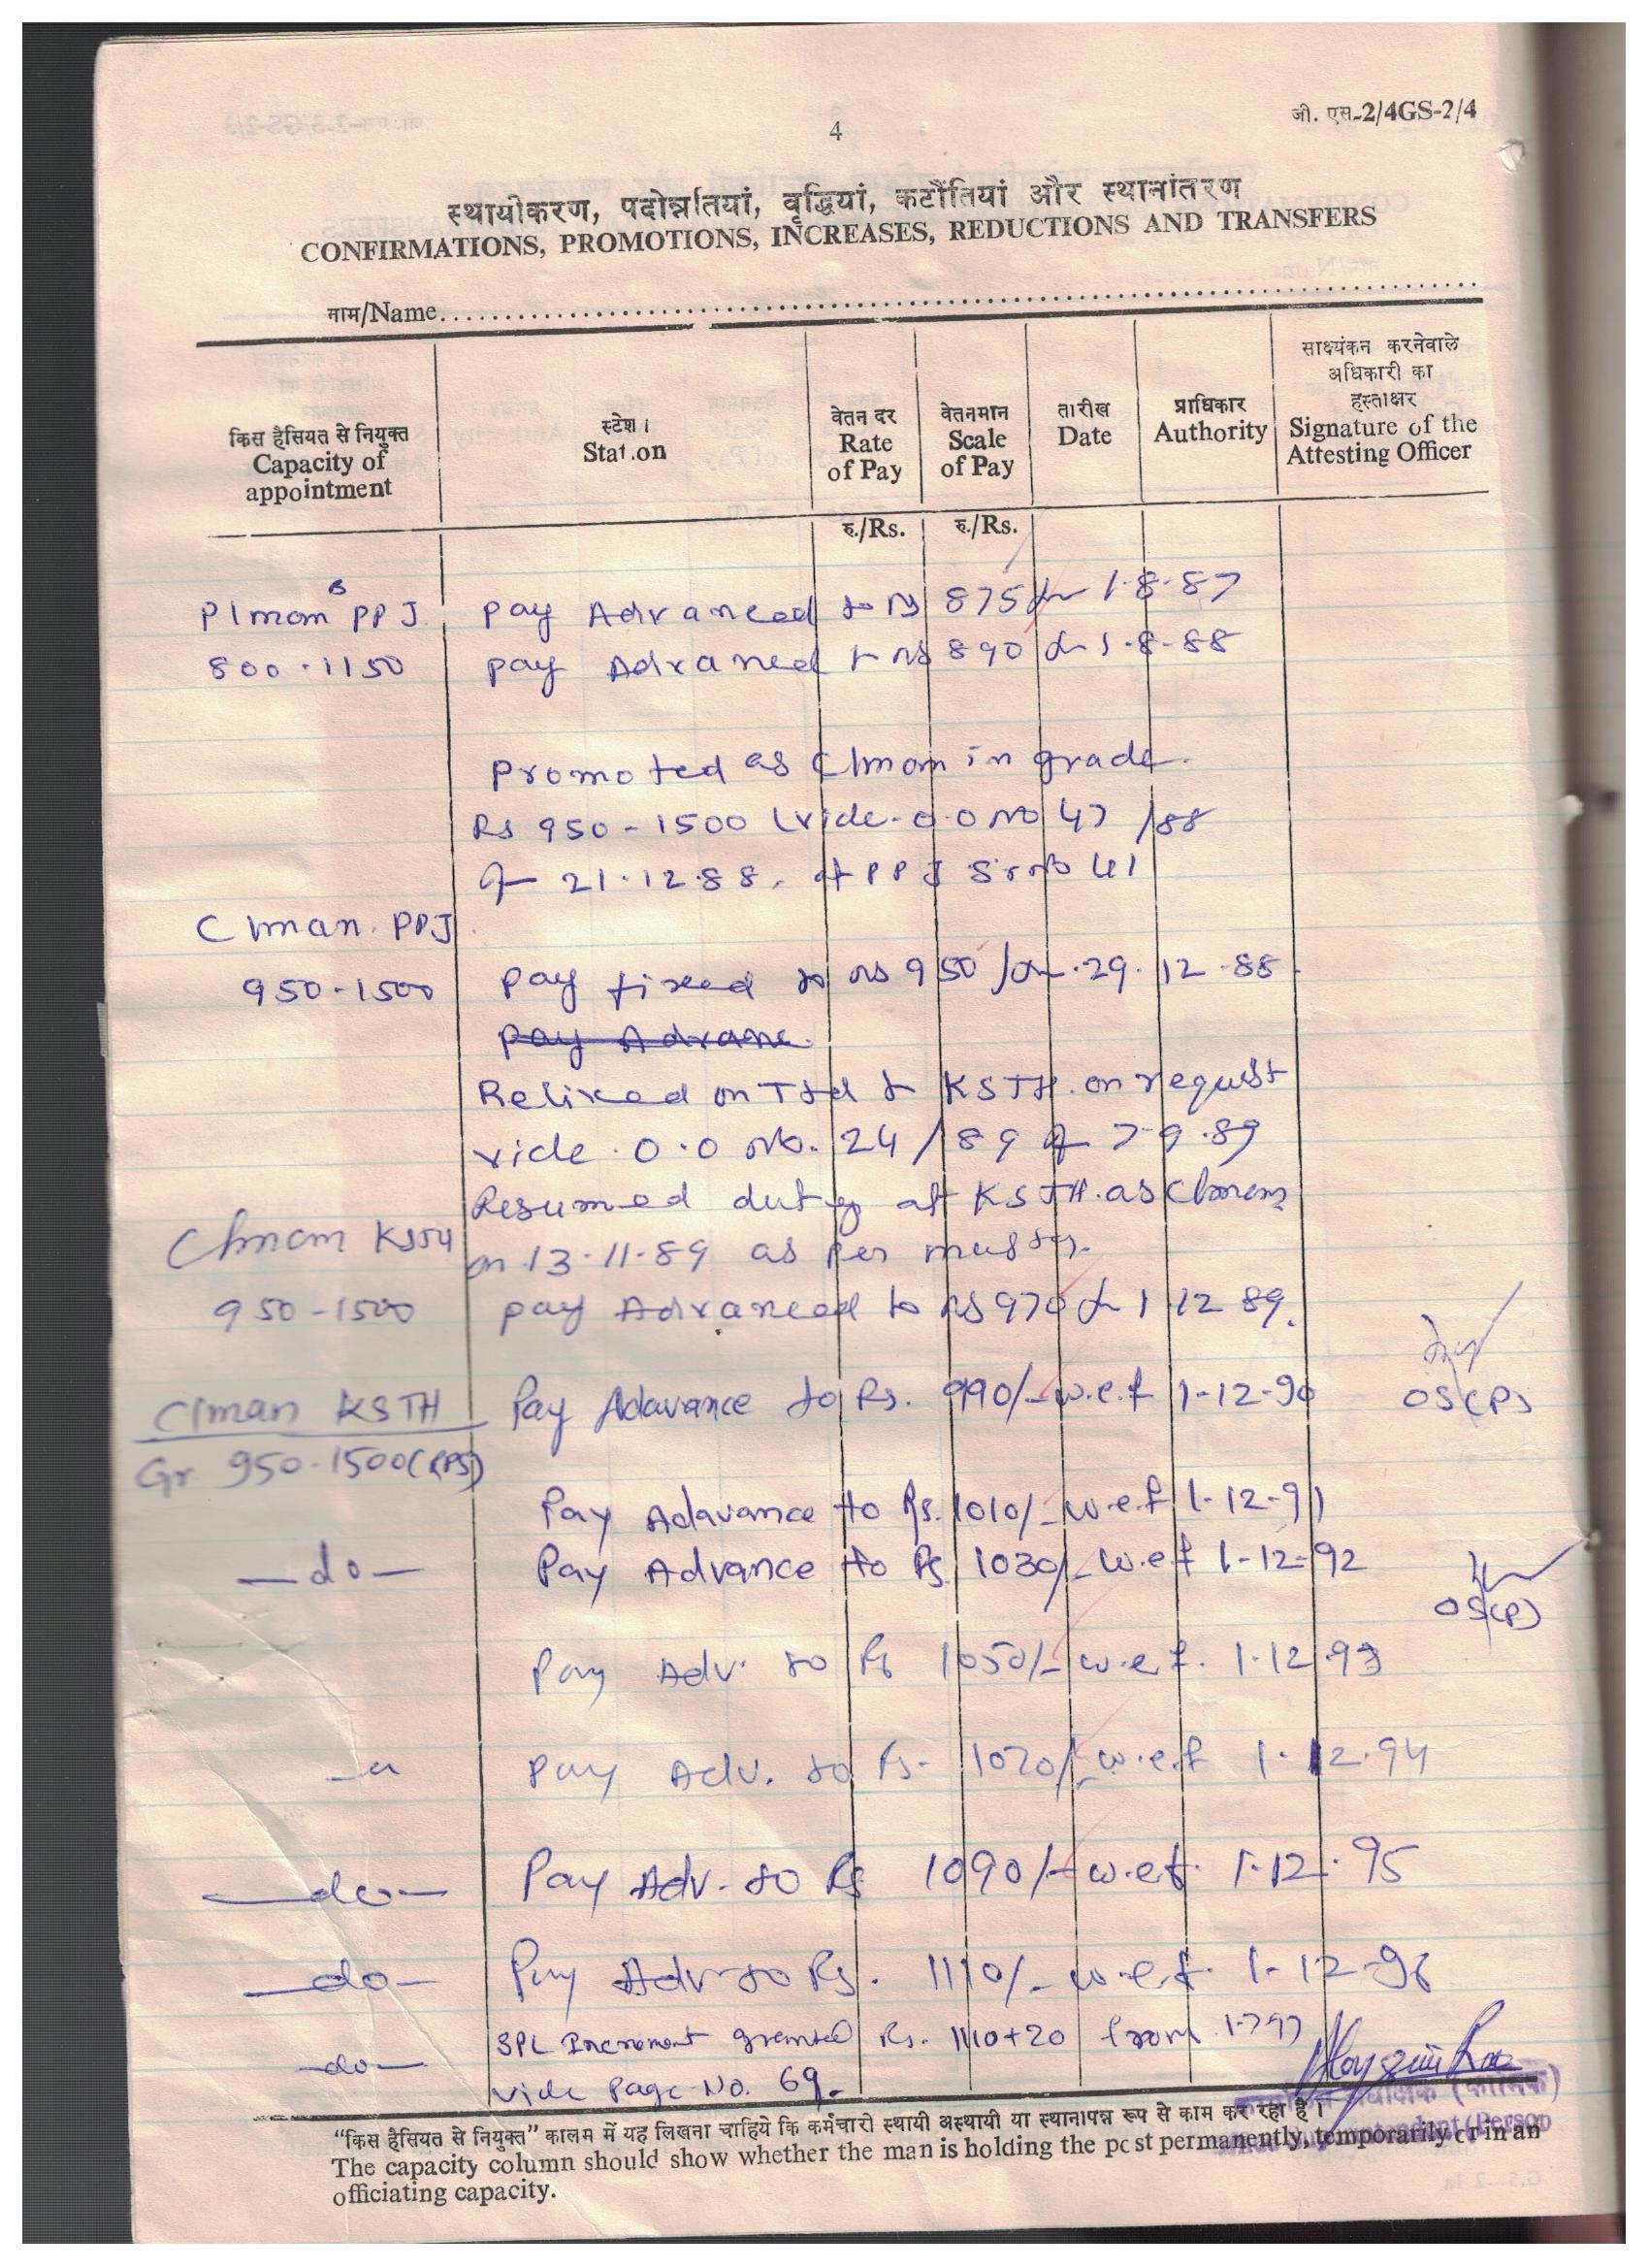 जी. एस.-2/4GS-2/4
4
स्थायीकरण, पदोन्नतियां, वृद्धियां, कटौतियां और स्थानांतरण
CONFIRMATIONS, PROMOTIONS, INCREASES, REDUCTIONS AND TRANSFERS
नाम/Name
किस हैसियत से नियुक्त
Capacity of
appointment
स्टेश।
Stat.on
वेतन दर
Rate
of Pay
वेतनमान
Scale
of Pay
तारीख
Date
प्राधिकार
Authority
साक्ष्यंकन करनेवाले
अधिकारी का
हस्ताक्षर
Signature of the
Attesting Officer
रु./Rs. रु./Rs.
PPJ pay Advanced to Rs 875 1.8.87
800.1150 pay Advanced Rs 890 1.8.88
Promoted as C/man in grade.
Rs 950-1500 (vide. O.O NO 47/88
21.12.88. PPJ 41
C/man. PPJ
950-1500 pay fixed to Rs 950/ 29.12.88
pay Advanc
on KSTH on request
vide. O.O No. 24/89 7.9.89
Resumed duty at KSTH as C/man
C/man KSTH on 13.11.89 as per muster.
950-1500 pay Advanced to Rs 970 1 12 89.
C/man KSTH Pay Adavance to Rs. 990/- w.e.f 1-12-90
OS(P)
Gr. 950-1500(RPS)
Pay Adavance to Rs. 1010/- w.e.f 1-12-91
—do— Pay Advance to Rs 1030/- w.ef 1-12-92
OS(P)
Pay Adv. to Rs 1050/- w.e.f. 1.12.93
Pay Adv. to Rs- 1070/- w.e.f 1.12.94
—do— Pay Adv. to Rs 1090/- w.e.f. 1.12.95
—do— Pay Adv to Rs. 1110/- w.e.f. 1-12-96
SPL Increment granted Rs. 1110+20 from 1-7-97
—do— vide Page No. 69.
(कार्मिक)
"किस हैसियत से नियुक्त" कालम में यह लिखना चाहिये कि कर्मचारी स्थायी अस्थायी या स्थानापन्न रूप से काम कर रहा है।
The capacity column should show whether the man is holding the pcst permanently, temporarily cr in an
officiating capacity.